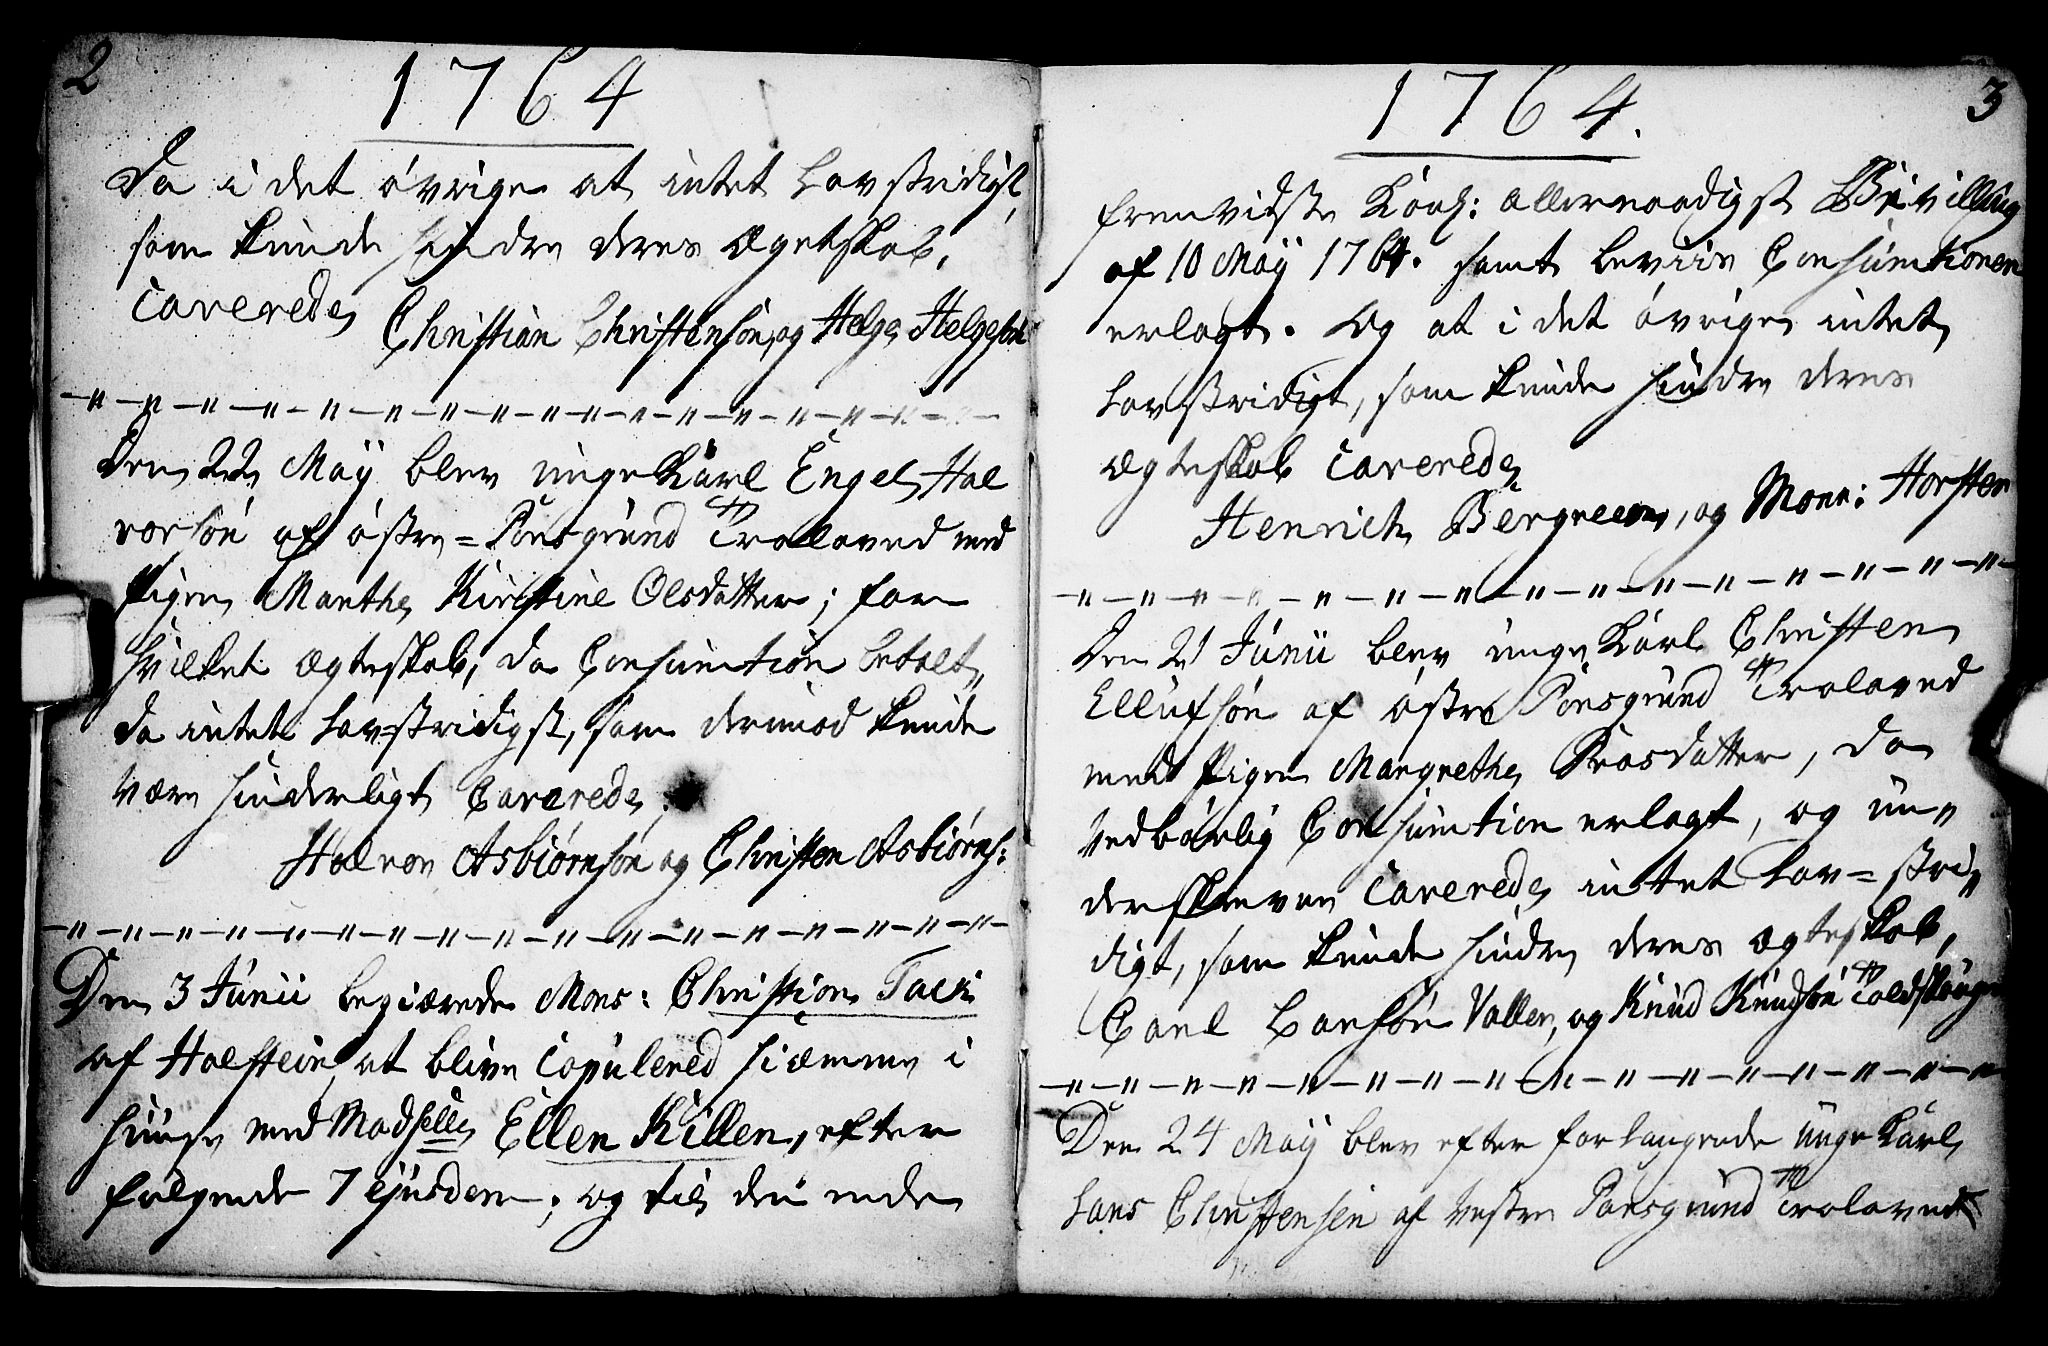 2
1764
Da i det øvrige at intet Lovstridigt,
som kunde hindre deres Ægteskab,
Caverede
Christian Christensøn, og Helge Helgesøn
Den 22 Maÿ blev unge Karl Engel Hal
vorsøn af østre = Porsgrund Troloved med
Pigen Marthe Kirstine Olsdatter; for
hvilket Ægteskab, da Consumtion betalt,
da intet Lov-stridigst, som derimod kunde
være hinderligt Caverede,
Halvor Asbiørnsøn og Christen Asbiørns:
Den 3 Junii begiærede Mons: Christian Tack
af Holstein, at blive Copulered hiemme i
huuse med Madselle Ellen Killen, efter
følgende 7 ejusdem; og til den ende
3
1764.
fremvidste Kongl: allernaadigst Bevilling
af 10 Maÿ 1764. samt beviis Consumtionen
erlagt. Og at i det øvrige intet
Lovstridigt, som kunde hindre deres
Ægteskab Caverede,
Henrich Bergreen, og Monr: Horsten
Den 21 Junii blev unge Karl Christen
Ellufsøn af østre Porsgrund Troloved
med Pigen Margrethe Persdatter, da
vedbørlig Consumtion erlagt, og un-
derskreven Caverede intet Lov = stri-
digt, som kunde hindre deres ægteskab,
Carl Larsøn Vallen, og Knud Knudsøn Toldskougen
Den 24 Maÿ blev efter forlangende unge Karl
Lars Christensen af vestre Porsgrund Trolovet